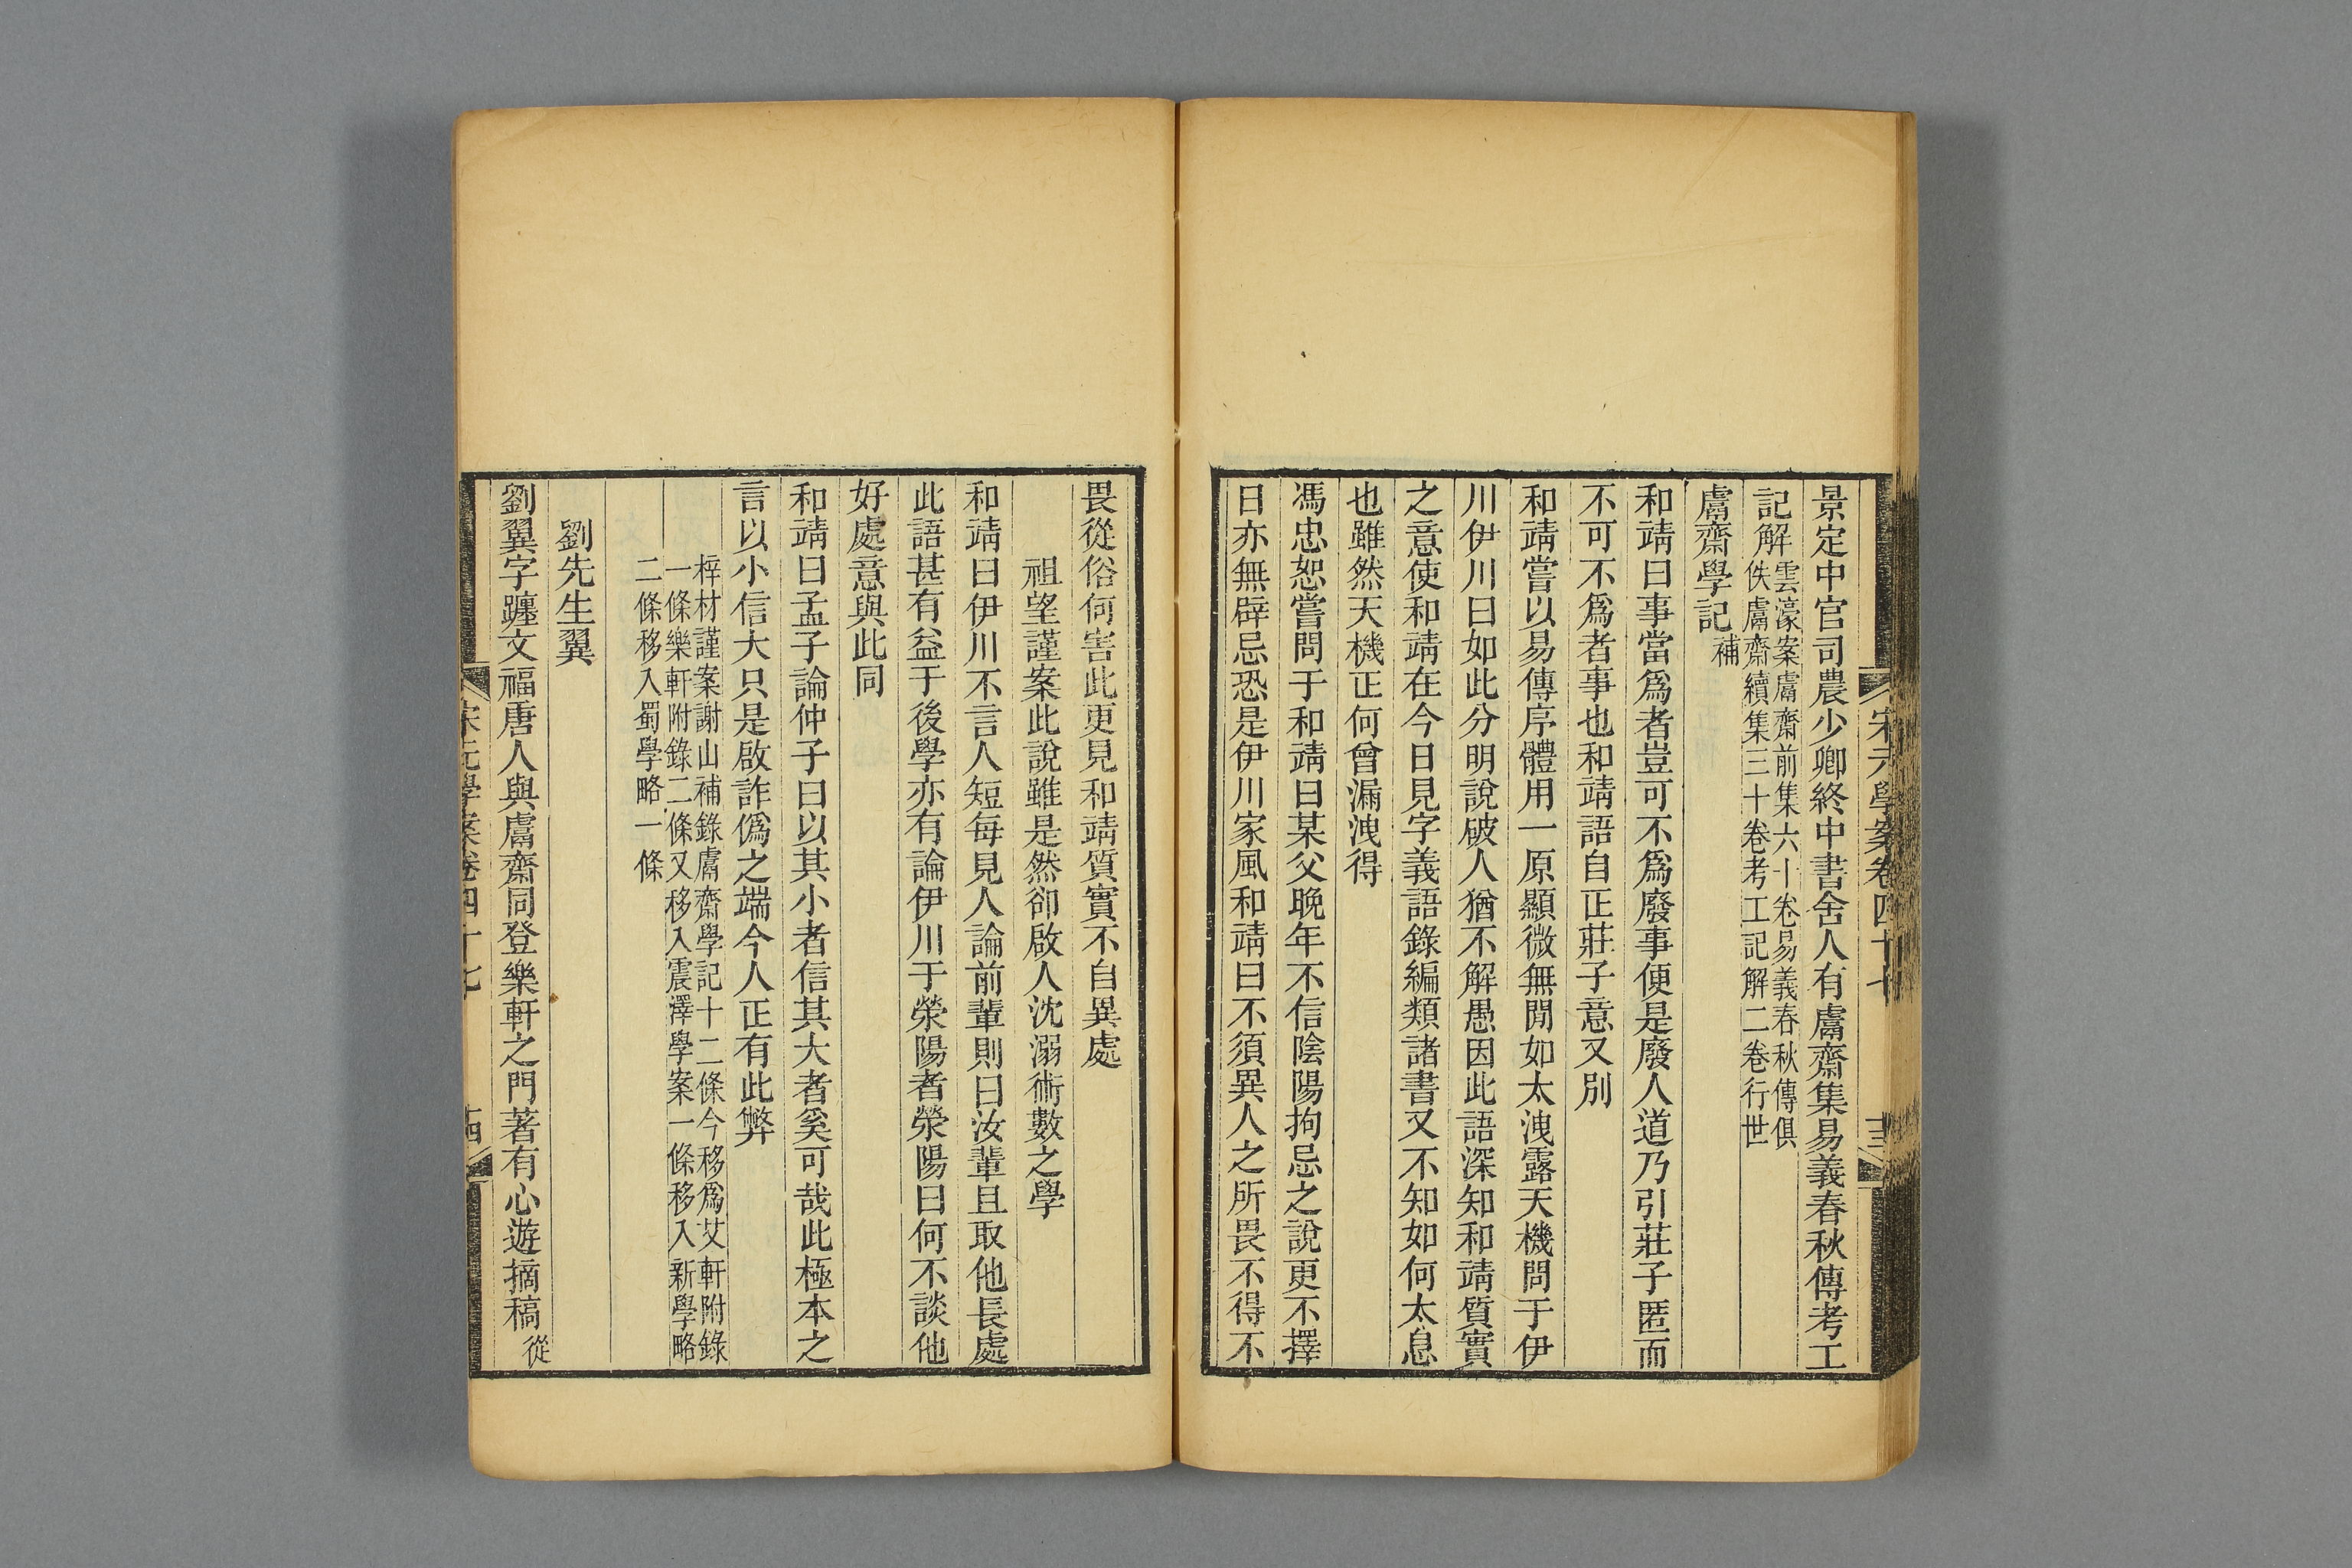 宋元學案卷四十七
十三
景定中官司農少卿終中書舍人有鬳齋集易義春秋傳考工
記解
雲濠案鬳齋前集六十卷易義春秋傳俱
佚鬳齋續集三十卷考工記解二卷行世
鬳齋學記補
和靖曰事當爲者豈可不爲廢事便是廢人道乃引莊子匿而
不可不爲者事也和靖語自正莊子意又別
和靖嘗以易傳序體用一原顯微無閒如太洩露天機問于伊
川伊川曰如此分明說破人猶不解愚因此語深知和靖質實
之意使和靖在今日見字義語錄編類諸書又不知如何太息
也雖然天機正何曾漏洩得
馮忠恕嘗問于和靖曰某父晚年不信陰陽拘忌之說更不擇
日亦無辟忌恐是伊川家風和靖曰不須異人之所畏不得不
畏從俗何害此更見和靖質實不自異處
祖望謹案此說雖是然卻啟人沈溺術數之學
和靖曰伊川不言人短每見人論前輩則曰汝輩且取他長處
此語甚有益于後學亦有論伊川于滎陽者滎陽曰何不談他
好處意與此同
和靖曰孟子論仲子曰以其小者信其大者奚可哉此極本之
言以小信大只是啟詐僞之端今人正有此弊
梓材謹案謝山補錄鬳齋學記十二條今移爲艾軒附錄
一條樂軒附錄二條又移入震澤學案一條移入新學略
二條移入蜀學略一條
劉先生翼
劉翼字躔文福唐人與鬳齋同登樂軒之門著有心遊摘稿從
宋元學案卷四十七
十四